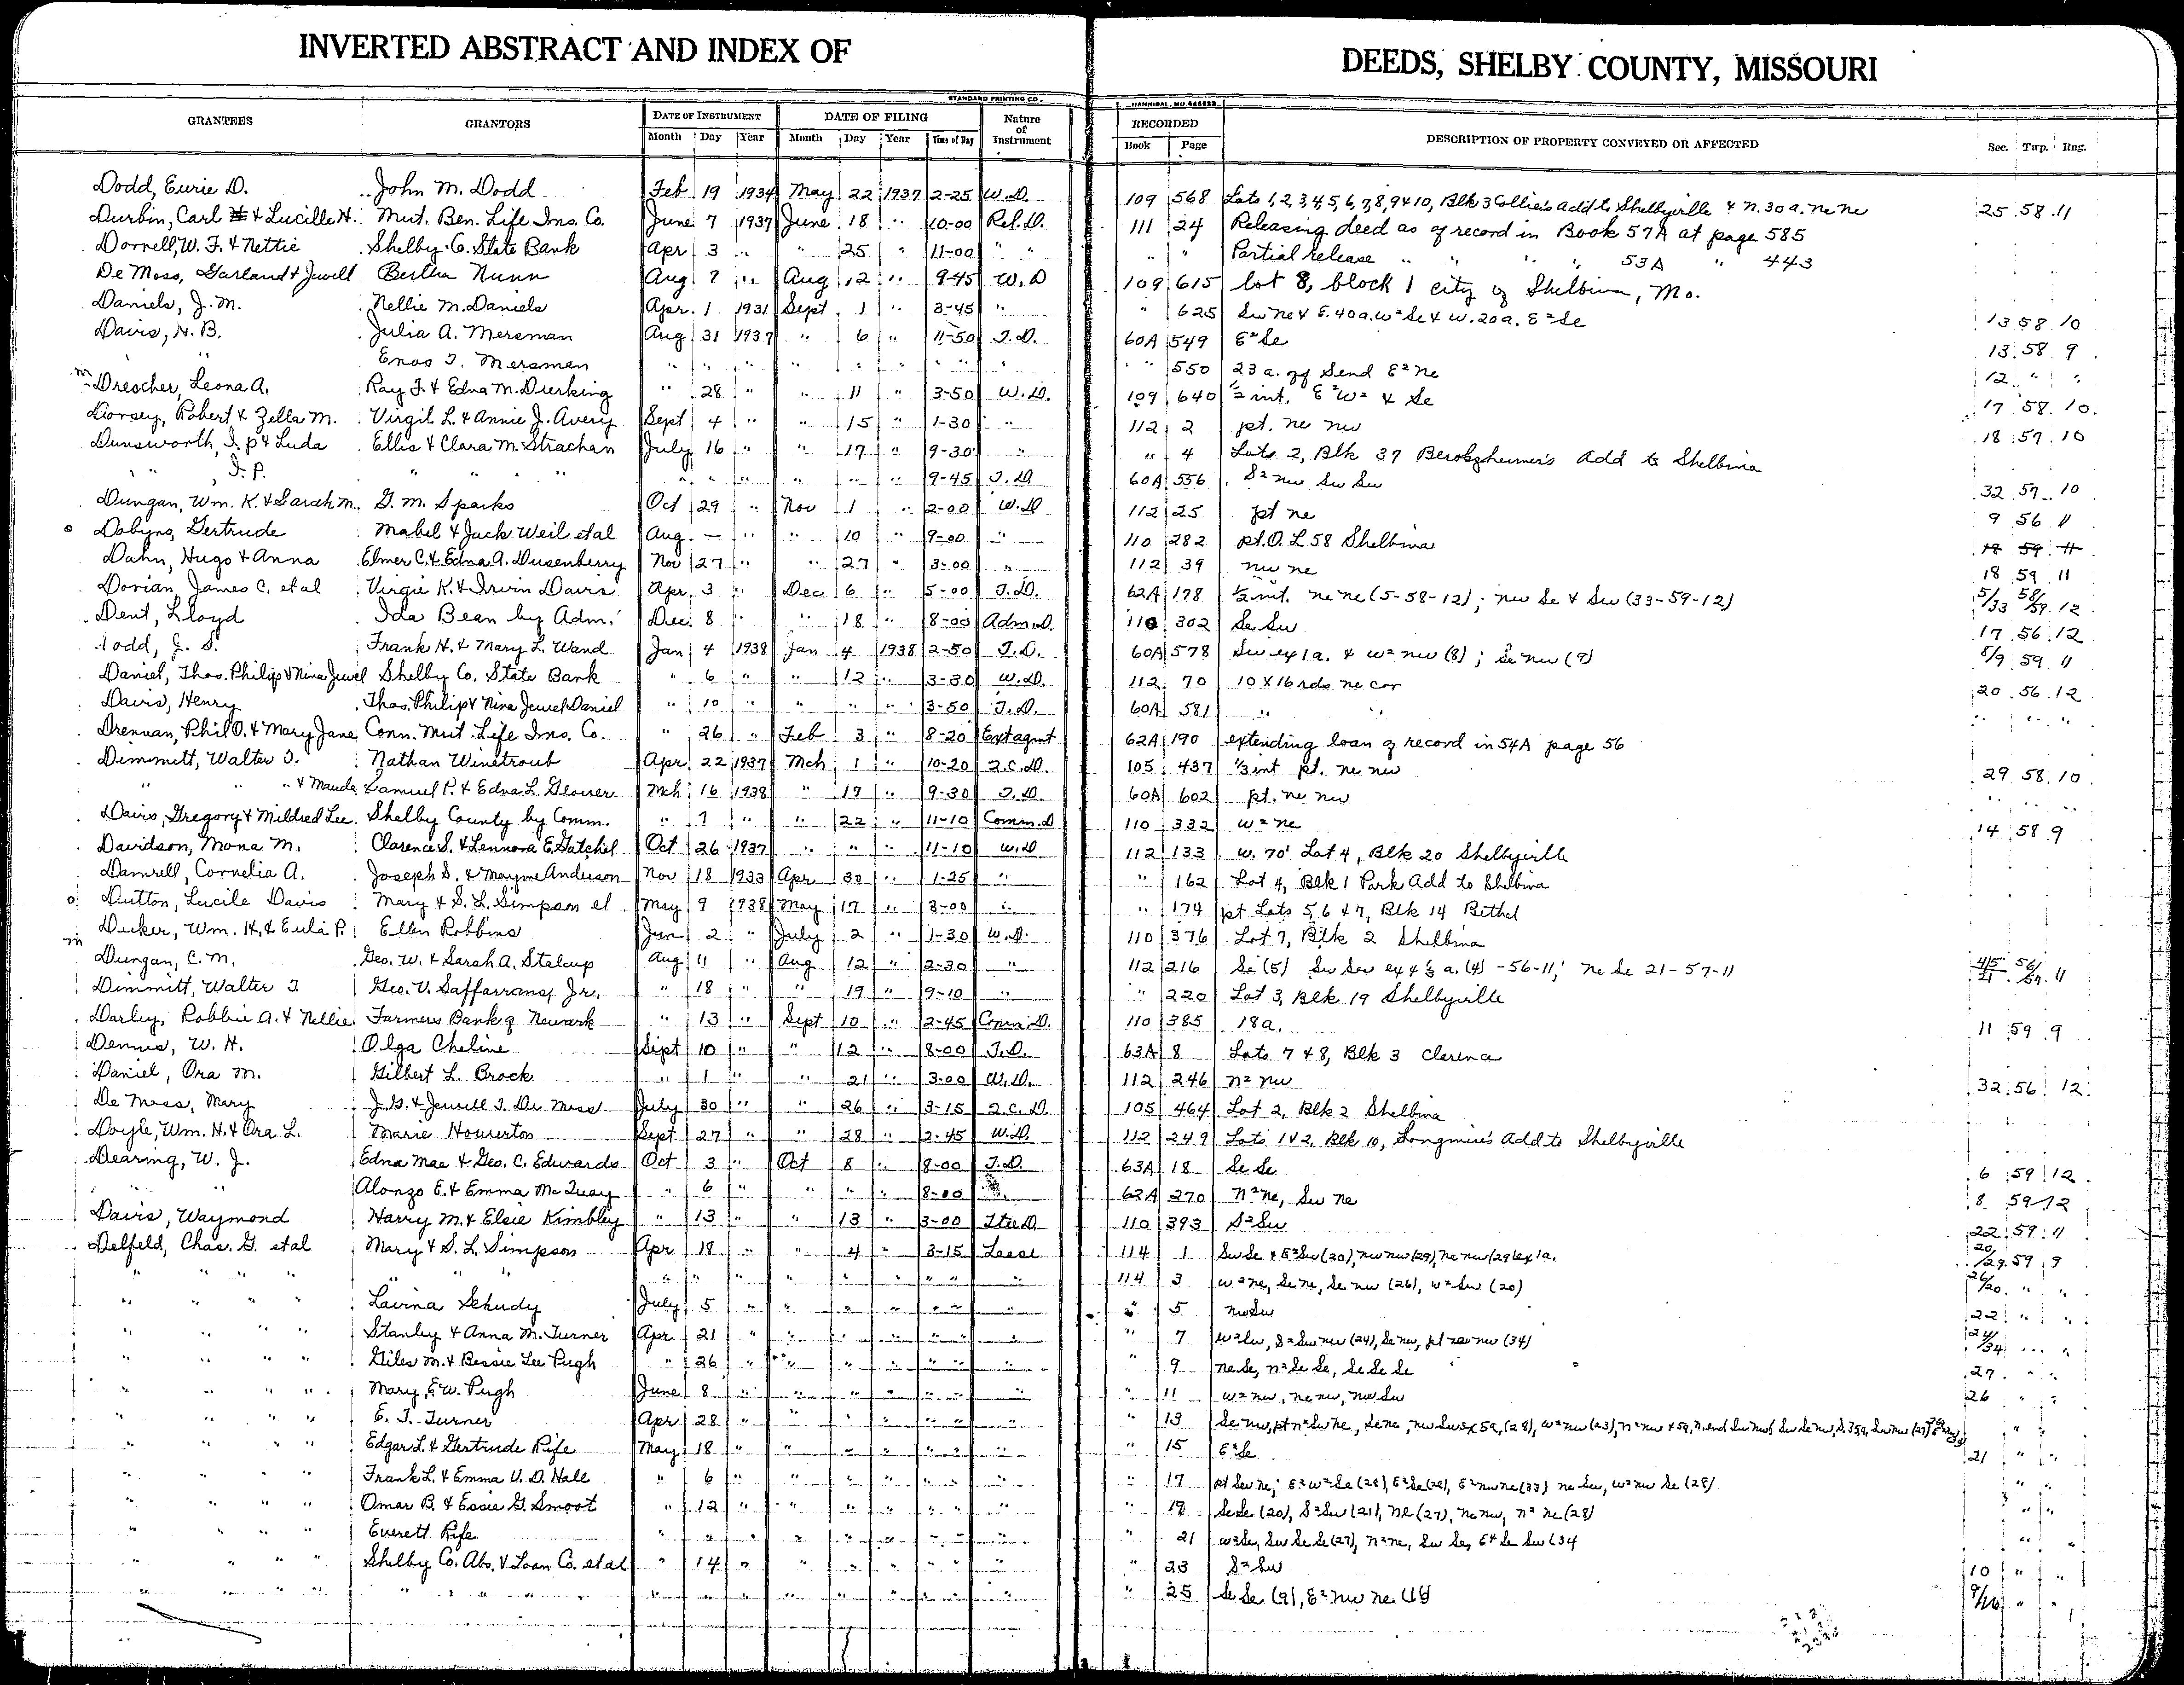 INVERTED ABSTRACT AND INDEX OF DEEDS, SHELBY COUNTY, MISSOURI
STANDARD PRINTING CO. HANNIBAL, MO.
GRANTEES GRANTORS DATE OF INSTRUMENT DATE OF FILING Nature of Instrument RECORDED DESCRIPTION OF PROPERTY CONVEYED OR AFFECTED Sec. Twp. Rng.
Month Day Year Month Day Year Time of Day Book Page
Dodd, Eurie D. John M. Dodd Feb 19 1934 May 22 1937 2-25 W.D. 109 568 Lots 1,2,3,4,5,6,7,8,9 & 10, Blk 3 Collier's Add to Shelbyville & n. 30 a. ne ne 25 58 11
Durbin, Carl & Lucille H. Mut. Ben. Life Ins. Co. June 7 1937 June 18 " 10-00 Rel. D. 111 24 Releasing deed as of record in Book 57A at page 585
Dorrell, W. F. & Nettie Shelby Co. State Bank Apr 3 " " 25 " 11-00 " " " " Partial release " " " " 53A " 443
De Moss, Garland & Jewell Bertha Nunn Aug 7 " Aug 12 " 9-45 W.D 109 615 Lot 8, block 1 city of Shelbina, Mo.
Daniels, J. M. Nellie M. Daniels Apr. 1 1931 Sept 1 " 3-45 " " 625 Sw ne & E. 40 a. w² Se & w. 20 a. E² Se 13 58 10
Davis, H. B. Julia A. Mersman Aug 31 1937 " 6 " 11-50 T.D. 60A 549 E² Se 13 58 9
" Enos T. Mersman " " " " " " " " " 550 23 a. off Send E² ne 12 " "
m Drescher, Leona A. Ray F. & Edna M. Dierking " 28 " " 11 " 3-50 W.D. 109 640 ½ int. E² W² & Se 17 58 10
Dorsey, Robert & Zella M. Virgil L. & Annie J. Avery Sept 4 " " 15 " 1-30 " 112 2 pt. ne nw 18 57 10
Dunsworth, I. P. & Luda Ellis & Clara M. Strachan July 16 " " 17 " 9-30 " " 4 Lots 2, Blk 37 Berolzheimer's Add to Shelbina
" , I. P. " " " " " " " " " " 9-45 T.D 60A 556 S² nw Sw Sw 32 57 10
Dungan, Wm. K. & Sarah M. G. M. Sparks Oct 29 " Nov 1 " 2-00 W.D 112 25 pt ne 9 56 11
o Dobyns, Gertrude Mabel & Jack Weil et al Aug — " " 10 " 9-00 " 110 282 pt. O. L 58 Shelbina 18 59 11
Dahn, Hugo & Anna Elmer C. & Edna A. Dusenberry Nov 27 " " 27 " 3-00 " 112 39 nw ne 18 59 11
Dorian, James C. et al Virgie K. & Irvin Davis Apr 3 " Dec 6 " 5-00 T.D. 62A 178 ½ int. ne ne (5-58-12); nw Se & Sw (33-59-12) 5/33 58/59 12
Dent, Lloyd Ida Bean by Adm. Dec. 8 " " 18 " 8-00 Adm. D. 110 302 Se Sw 17 56 12
Todd, J. S. Frank H. & Mary L. Wand Jan 4 1938 Jan 4 1938 2-50 T.D. 60A 578 Sw ex 1 a. & w² nw (8); Se nw (9) 8/9 59 11
Daniel, Thos. Philip & Nina Jewel Shelby Co. State Bank " 6 " " 12 " 3-30 W.D. 112 70 10 X 16 rds. ne cor 20 56 12
Davis, Henry Thos. Philip & Nina Jewel Daniel " 10 " " " " 3-50 T.D. 60A 581 " " " " "
Drennan, Phil O. & Mary Jane Conn. Mut. Life Ins. Co. " 26 " Feb 3 " 8-20 Ext agmt 62A 190 extending loan of record in 54A page 56
Dimmitt, Walter T. Nathan Winetroub Apr 22 1937 Mch 1 " 10-20 Q.C.D. 105 437 ⅓ int pt. ne nw 29 58 10
" " " & Maude Samuel P. & Edna L. Glover Mch 16 1938 " 17 " 9-30 T.D. 60A 602 pt. ne nw " " "
Davis, Gregory & Mildred Lee Shelby County by Comm. " 7 " " 22 " 11-10 Comm. D 110 332 w² ne 14 58 9
Davidson, Mona M. Clarence S. & Lennora E. Gatchel Oct 26 1937 " " " 11-10 W.D 112 133 w. 70' Lot 4, Blk 20 Shelbyville
Damrell, Cornelia A. Joseph S. & Mayme Anderson Nov 18 1933 Apr 30 " 1-25 " " 162 Lot 4, Blk 1 Park Add to Shelbina
o Dutton, Lucile Davis Mary & S. L. Simpson et May 9 1938 May 17 " 3-00 " " 174 pt Lots 5, 6 & 7, Blk 14 Bethel
m Decker, Wm. H. & Eula P. Ellen Robbins Jun 2 " July 2 " 1-30 W.D. 110 376 Lot 7, Blk 2 Shelbina
Dungan, C. M. Geo. W. & Sarah A. Stalcup Aug 11 " Aug 12 " 2-30 " 112 216 Se (5) Sw Sw ex 4 ⅓ a. (4) -56-11; ne Se 21-57-11 4/5/21 56/57 11
Dimmitt, Walter T. Geo. V. Saffarrans, Jr. " 18 " " 19 " 9-10 " " 220 Lot 3, Blk 19 Shelbyville
Darley, Robbie A. & Nellie Farmers Bank of Newark " 13 " Sept 10 " 2-45 Comm. D. 110 385 18 a. 11 59 9
Dennis, W. H. Olga Cheline Sept 10 " " 12 " 8-00 T.D. 63A 8 Lots 7 & 8, Blk 3 Clarence
Daniel, Ora M. Gilbert L. Brock " 1 " " 21 " 3-00 W.D. 112 246 n² nw 32 56 12
De Moss, Mary J. G. & Jewell I. De Moss July 30 " " 26 " 3-15 Q.C.D. 105 464 Lot 2, Blk 2 Shelbina
Doyle, Wm. H. & Ora L. Marie Howerton Sept 27 " " 28 " 2-45 W.D. 112 249 Lots 1 & 2, Blk 10, Longmire's Add to Shelbyville
Dearing, W. J. Edna Mae & Geo. C. Edwards Oct 3 " Oct 8 " 8-00 T.D. 63A 18 Se Se 6 59 12
" " Alonzo E. & Emma McQuay " 6 " " " " 8-00 62A 270 n² ne, Sw ne 8 59 12
Davis, Waymond Harry M. & Elsie Kimbley " 13 " " 13 " 3-00 Tte D 110 393 S² Sw 22 59 11
Delfeld, Chas. G. et al Mary & S. L. Simpson Apr 18 " " 4 " 3-15 Lease 114 1 Sw Se & E² Sw (20), nw nw (29), ne nw (29) ex 1 a. 20/29 59 9
" " " " " " " " " " " " " " " 114 3 w² ne, Se ne, Se nw (26), w² Sw (20) 26/20 " "
" " " " Lavina Schudy July 5 " " " " " " " 5 nw Sw 22 " "
" " " " Stanley & Anna M. Turner Apr 21 " " " " " " " 7 w² Sw, S² Sw nw (24), Se nw, pt nw (34) 24/34 " "
" " " " Giles M. & Bessie Lee Pugh " 26 " " " " " " " 9 ne Se, n² Se Se, Se Se Se 27 " "
" " " " Mary E. W. Pugh June 8 " " " " " " " 11 w² nw, ne nw, nw Sw 26 " "
" " " " E. T. Turner Apr 28 " " " " " " " 13 Se nw, pt n² Sw ne, Se ne, nw Sw ex 5a, (28), w² nw (23), n² nw " "
" " " " Edgar L. & Gertrude Rife May 18 " " " " " " " 15 E² Se 21 " "
" " " " Frank L. & Emma V. D. Hale " 6 " " " " " " " 17 pt Sw ne; E² w² Se (28), E² Se (28), E² nw ne (33) ne Sw, w² nw Se (28) " "
" " " " Omar B. & Essie G. Smoot " 12 " " " " " " " 19 Se Se (20), S² Sw (21), ne (27), ne nw, n² ne (28) " "
" " " " Everett Rife " " " " " " " " " 21 w² Se, Sw Se Se (27), n² ne, Sw Se, E⁴ Se Sw (34 " "
" " " " Shelby Co. Abs. & Loan Co. et al " 14 " " " " " " " 23 S² Sw 10 " "
" " " " " " " " " " " " " " " 25 Se Se (9), E² nw ne (16) 9/16 " "